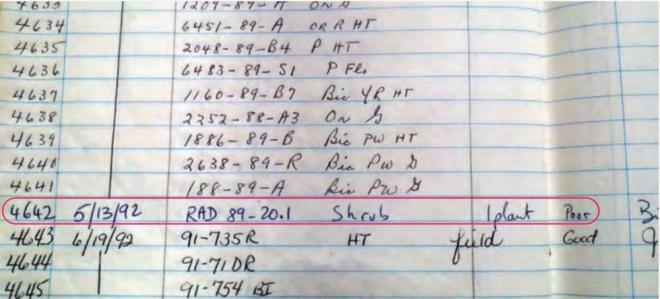 4634 6451-89-A OR R HT
4635 2048-89-B4 P HT
4636 6483-89-S1 P Flo
4637 1160-89-B7 Bic YR HT
4638 2352-88-A3 On G
4639 1886-89-B Bic PW HT
4640 2638-89-R Bic PW G
4641 188-89-A Bic PW G
4642 5/13/92 RAD 89-20.1 Shrub 1 plant Poor
4643 6/19/92 91-735R HT field Good
4644 91-71DR
4645 91-754 BI